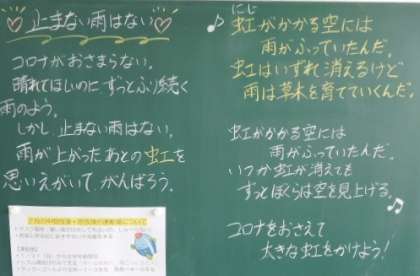 止まない雨はない
コロナがおさまらない。
晴れてほしいのに、ずっとふり続く
雨のよう。
しかし、止まない雨はない。
雨が上がったあとの虹を
思いえがいて、がんばろう。
にじ
虹がかかる空には
雨がふっていたんだ。
虹はいずれ消えるけど
雨は草木を育てていくんだ。
虹がかかる空には
雨がふっていたんだ。
いつか虹が消えても
ずっとぼくらは空を見上げる。
コロナをおさえて
大きな虹をかけよう!